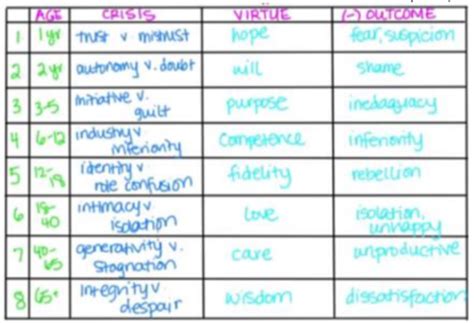 AGE CRISIS VIRTUE (-) OUTCOME
1 1yr trust v mistrust hope fear, suspicion
2 2yr autonomy v. doubt will shame
3 3-5 initiative v. guilt purpose inedaquacy
4 6-12 industry v inferiority competence inferiority
5 12-18 identity v role confusion fidelity rebellion
6 18-40 intimacy v isolation love isolation, unhappy
7 40-65 generativity v. stagnation care unproductive
8 65+ integrity v despair wisdom dissatisfaction